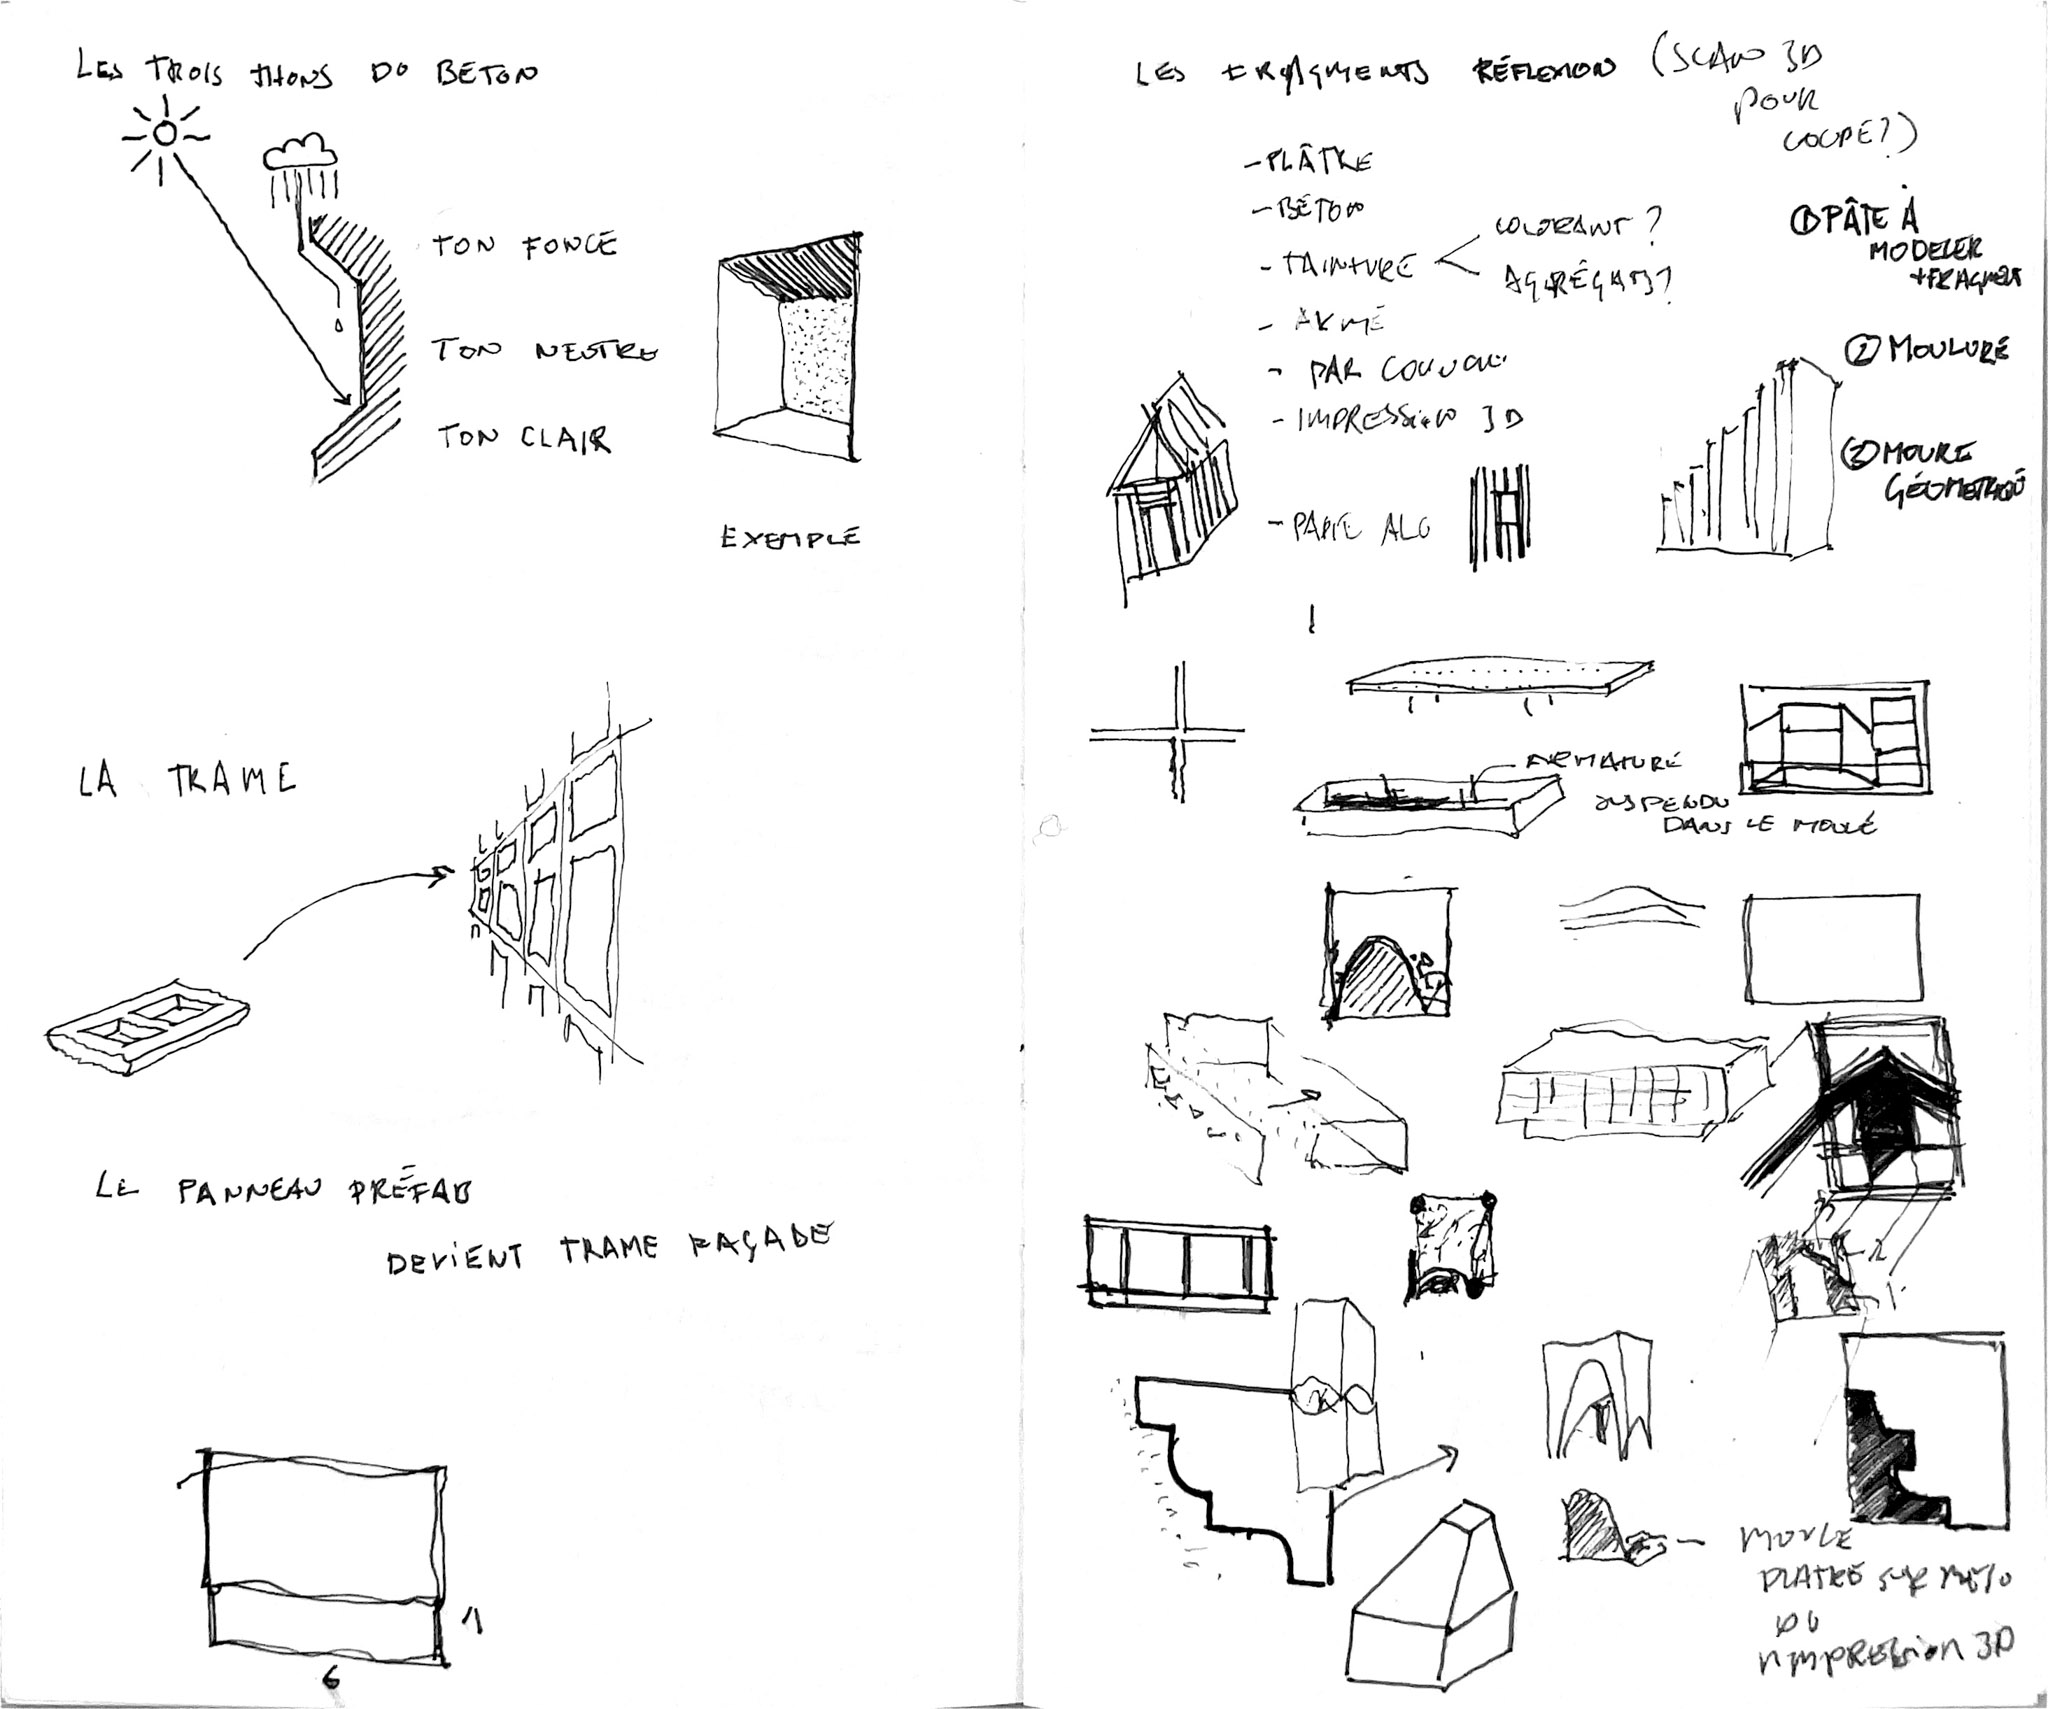 LES TROIS THONS DU BÉTON
TON FONCÉ
TON NEUTRE
TON CLAIR
EXEMPLE
LA TRAME
LE PANNEAU PRÉFAB
DEVIENT TRAME FAÇADE
6
LES FRAGMENTS RÉFLEXION (SCAN 3D
POUR
COUPE?)
- PLÂTRE
- BÉTON
- TAINTURE
COLORANT?
AGGRÉGATS?
- ARMÉ
- PAR
- IMPRESSION 3D
- ALU
① PÂTE À
MODELER
+ FRAGMENT
② MOULURE
③ MOURE
ARMATURE
SUSPENDU
DANS LE MOULE
MOULE
PLATRE SUR
OU
IMPRESSION 3D